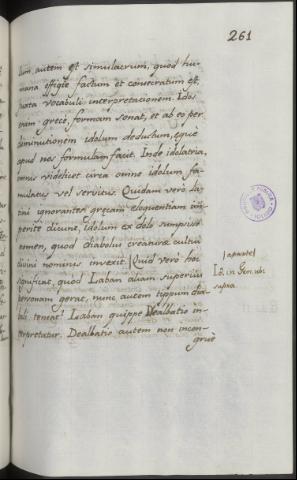 261
lum autem est simulacrum, quod hu-
mana effigie factum et consecratum est,
juxta vocabuli interpretationem. Idos
enim grecè, formam sonat, et ab eo per
diminutionem idolum deductum, equè
apud nos formulam facit. Inde idolatria,
omnis videlicet circa omne idolum fa-
mulatus vel servitus. Quidam verò la-
tini ignorantes grecam eloquentiam im-
perite dicunt, idolum ex dolo sumpsisse
nomen, quod diabolus creaturæ cultum
divini nominis invexit. Quid verò hoc
significat, quod Laban aliam superius
personam gerat, nunc autem tippum dia-
boli teneat? Laban quippe Dealbatio in-
terpretatur. Dealbatio autem non incon-
gruè
Iâ in Gen. ubi
supra